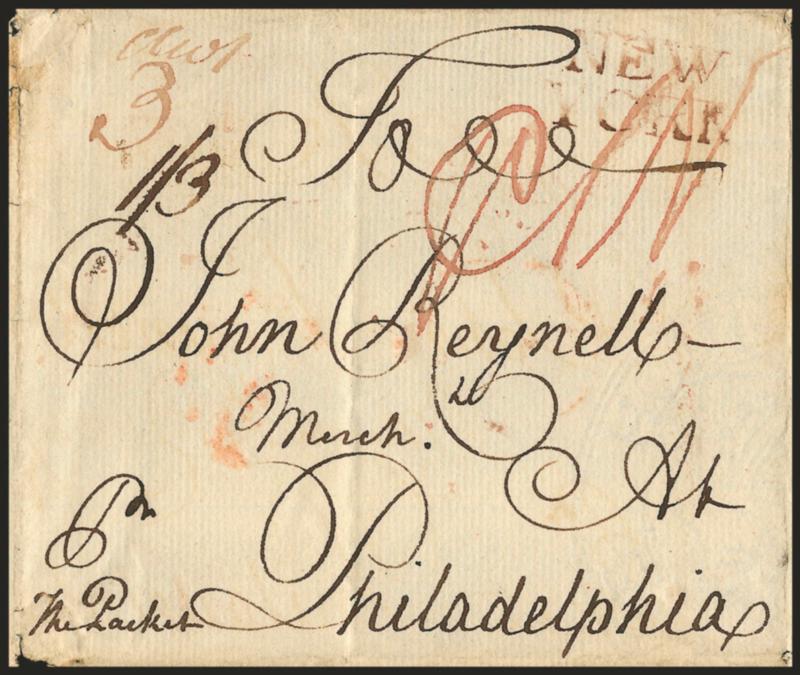 NEW
YORK
3
1/3
To
John Reynell
Merch.ᵗ
At
Pʳ
The Packet
Philadelphia